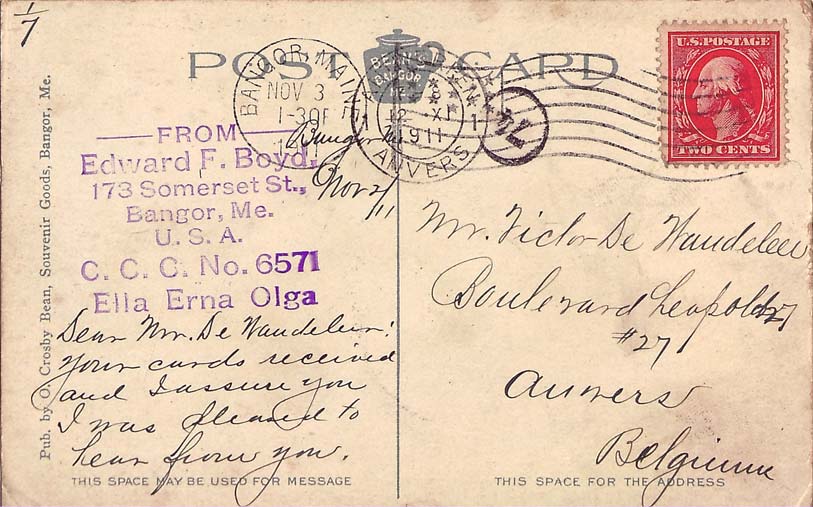 1/7
POST CARD
BEAN'S
BANGOR
BANGOR, MAINE
NOV 3
1-30P
ANVERS
12 XI
1911
1
U.S. POSTAGE
TWO CENTS
FROM
Edward F. Boyd,
173 Somerset St.,
Bangor, Me.
U. S. A.
C. C. C. No. 6571
Ella Erna Olga
Bangor
Nov 2/11
Dear Mr. De Waudeleer:
Your cards received
and I assure you
I was pleased to
hear from you.
THIS SPACE MAY BE USED FOR MESSAGE
Pub. by O. Crosby Bean, Souvenir Goods, Bangor, Me.
Mr. Victor De Waudeleer
Boulevard Leopold 27
#27
Anvers
Belgium
THIS SPACE FOR THE ADDRESS